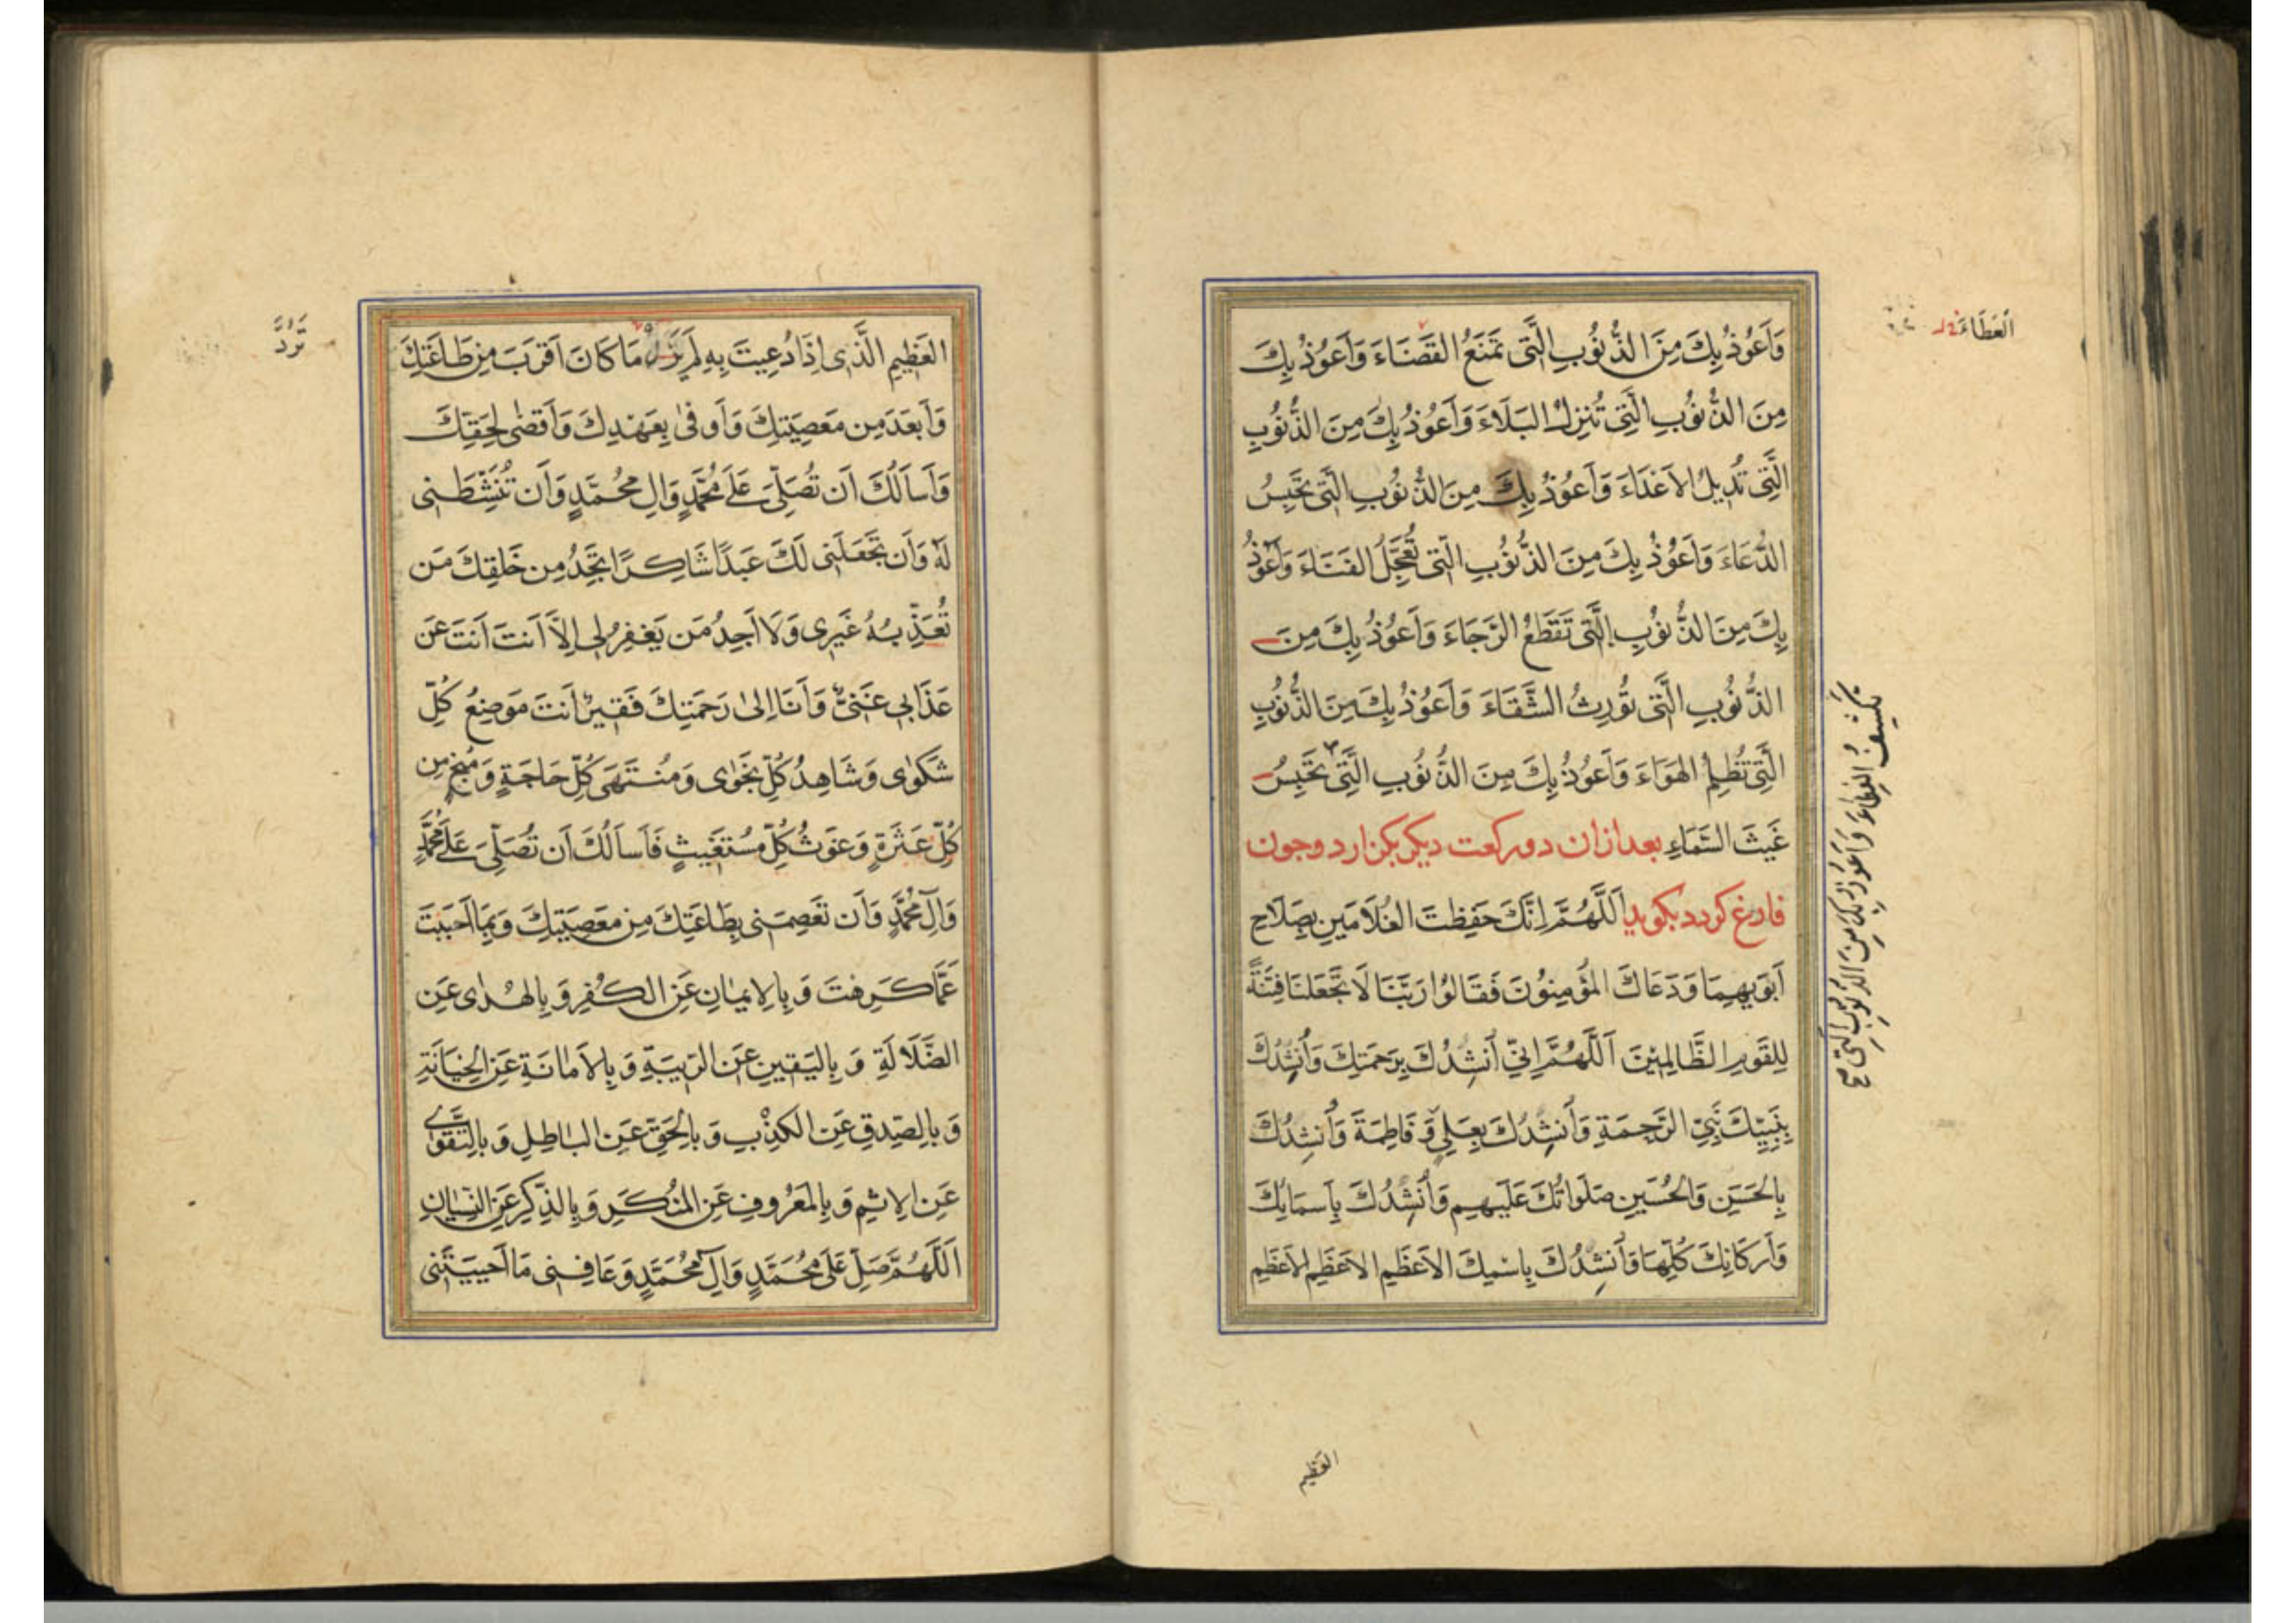 وَاَعُوذُ بِكَ مِنَ الذُّنُوبِ الَّتِى تَمْنَعُ القَضَاءَ وَاَعُوذُ بِكَ
مِنَ الذُّنُوبِ الَّتِى تُنزِلُ البَلَاءَ وَاَعُوذُ بِكَ مِنَ الذُّنُوبِ
الَّتِى تُدِيلُ الاَعْدَاءَ وَاَعُوذُ بِكَ مِنَ الذُّنُوبِ الَّتِى تَحْبِسُ
الدُّعَاءَ وَاَعُوذُ بِكَ مِنَ الذُّنُوبِ الَّتِى تُعَجِّلُ الفَنَاءَ وَاَعُوذُ
بِكَ مِنَ الذُّنُوبِ الَّتِى تَقْطَعُ الرَّجَاءَ وَاَعُوذُ بِكَ مِنَ
الذُّنُوبِ الَّتِى تُورِثُ الشَّقَاءَ وَاَعُوذُ بِكَ مِنَ الذُّنُوبِ
الَّتِى تُظْلِمُ الهَوَاءَ وَاَعُوذُ بِكَ مِنَ الذُّنُوبِ الَّتِى تَحْبِسُ
غَيْثَ السَّمَاءِ بعد ازان دو ركعت ديكر بكزارد وچون
فارغ كردد بكويد اَللَّهُمَّ اِنَّكَ حَفِظْتَ الغُلَامَيْنِ بِصَلَاحِ
اَبَوَيْهِمَا وَدَعَاكَ المُؤْمِنُونَ فَقَالُوا رَبَّنَا لَا تَجْعَلْنَا فِتْنَةً
لِلقَوْمِ الظَّالِمِينَ اَللَّهُمَّ اِنِّي اَنْشُدُكَ بِرَحْمَتِكَ وَاَنْشُدُكَ
بِنَبِيِّكَ نَبِيِّ الرَّحْمَةِ وَاَنْشُدُكَ بِعَلِيٍّ وَ فَاطِمَةَ وَاَنْشُدُكَ
بِالحَسَنِ وَالحُسَيْنِ صَلَوَاتُكَ عَلَيْهِم وَاَنْشُدُكَ بِاَسمَائِكَ
وَاَركَانِكَ كُلِّهَا وَاَنْشُدُكَ بِاسْمِكَ الاَعْظَمِ الاَعْظَمِ الاَعْظَمِ
العَطَاءَ
تَكْشِفُ الغِطَاءَ وَاَعُوذُ بِكَ مِنَ الذُّنُوبِ الَّتِى
العَظِيمِ
العَظِيمِ الَّذِى اِذَا دُعِيتَ بِهِ لَمْ مَا كَانَ اَقْرَبَ مِن طَاعَتِكَ
وَاَبْعَدَ مِن مَعْصِيَتِكَ وَاَوفٰى بِعَهْدِكَ وَاَقضٰى لِحَقِّكَ
وَاَسأَلُكَ اَن تُصَلِّىَ عَلٰى مُحَمَّدٍ وَالِ مُحَمَّدٍ وَاَن تُنَشِّطَنِى
لَهُ وَاَن تَجْعَلَنِى لَكَ عَبْدًا شَاكِرًا تَجِدُ مِن خَلْقِكَ مَن
تُعَذِّبُهُ غَيْرِى وَلَا اَجِدُ مَن يَغْفِرُ لِى اِلَّا اَنتَ اَنتَ عَن
عَذَابِى غَنِىٌّ وَاَنَا اِلٰى رَحْمَتِكَ فَقِيرٌ اَنتَ مَوضِعُ كُلِّ
شَكْوٰى وَشَاهِدُ كُلِّ نَجْوٰى وَمُنْتَهَى كُلِّ حَاجَةٍ وَمُنْجٍ مِن
كُلِّ عَثْرَةٍ وَغَوثُ كُلِّ مُسْتَغِيثٍ فَاَسأَلُكَ اَن تُصَلِّىَ عَلٰى مُحَمَّدٍ
وَآلِ مُحَمَّدٍ وَاَن تَعْصِمَنِى بِطَاعَتِكَ مِن مَعْصِيَتِكَ وَبِمَا اَحْبَبْتَ
عَمَّا كَرِهْتَ وَ بِالاِيمَانِ عَنِ الكُفْرِ وَ بِالهُدٰى عَنِ
الضَّلَالَةِ وَ بِاليَقِينِ عَنِ الرِّيبَةِ وَ بِالاَمَانَةِ عَنِ الخِيَانَةِ
وَ بِالصِّدقِ عَنِ الكِذْبِ وَ بِالحَقِّ عَنِ البَاطِلِ وَ بِالتَّقْوٰى
عَنِ الاِثمِ وَ بِالمَعْرُوفِ عَنِ المُنْكَرِ وَ بِالذِّكرِ عَنِ النِّسْيَانِ
اَللّٰهُمَّ صَلِّ عَلٰى مُحَمَّدٍ وَآلِ مُحَمَّدٍ وَعَافِنِى مَا اَحْيَيْتَنِى